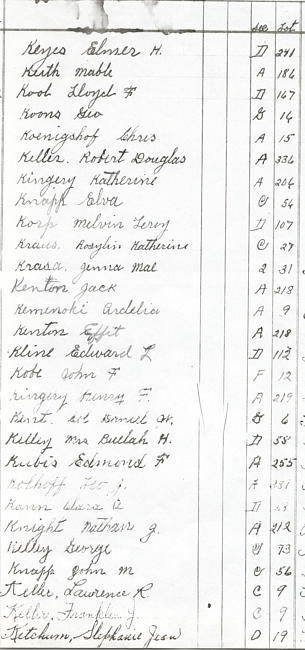 Sec Lot
Keyes Elmer H. D 241
Keith Mable A 186
Koob Lloyd F D 167
Koons Geo G 14
Koenigshof Chris A 15
Keller. Robert Douglas A 336
Kingery Katherine A 206
Knapp Elva C 54
Korp Melvin Leroy D 107
Kraus. Rosylin Katherine C 27
Krasa. Jenna Mae 2 31
Kenton Jack A 213
Keminoki Ardelia A 9
Kenton Effit A 218
Kline Edward L D 112
Kobe John F F 12
Kingery Henry F. A 219
Kent. Daniel W. G 6
Kelley Mrs Buelah H. D 58
Kubis Edmond F A 255
Kolhoff Leo J. A 331
Kann Clara A D 53
Knight Nathan J. A 212
Kelley George 73
Knapp John M C 56
Keller, Lawrence R C 9
Keller, Franklin J. C 9
Ketchum, Stephanie Jean D 19